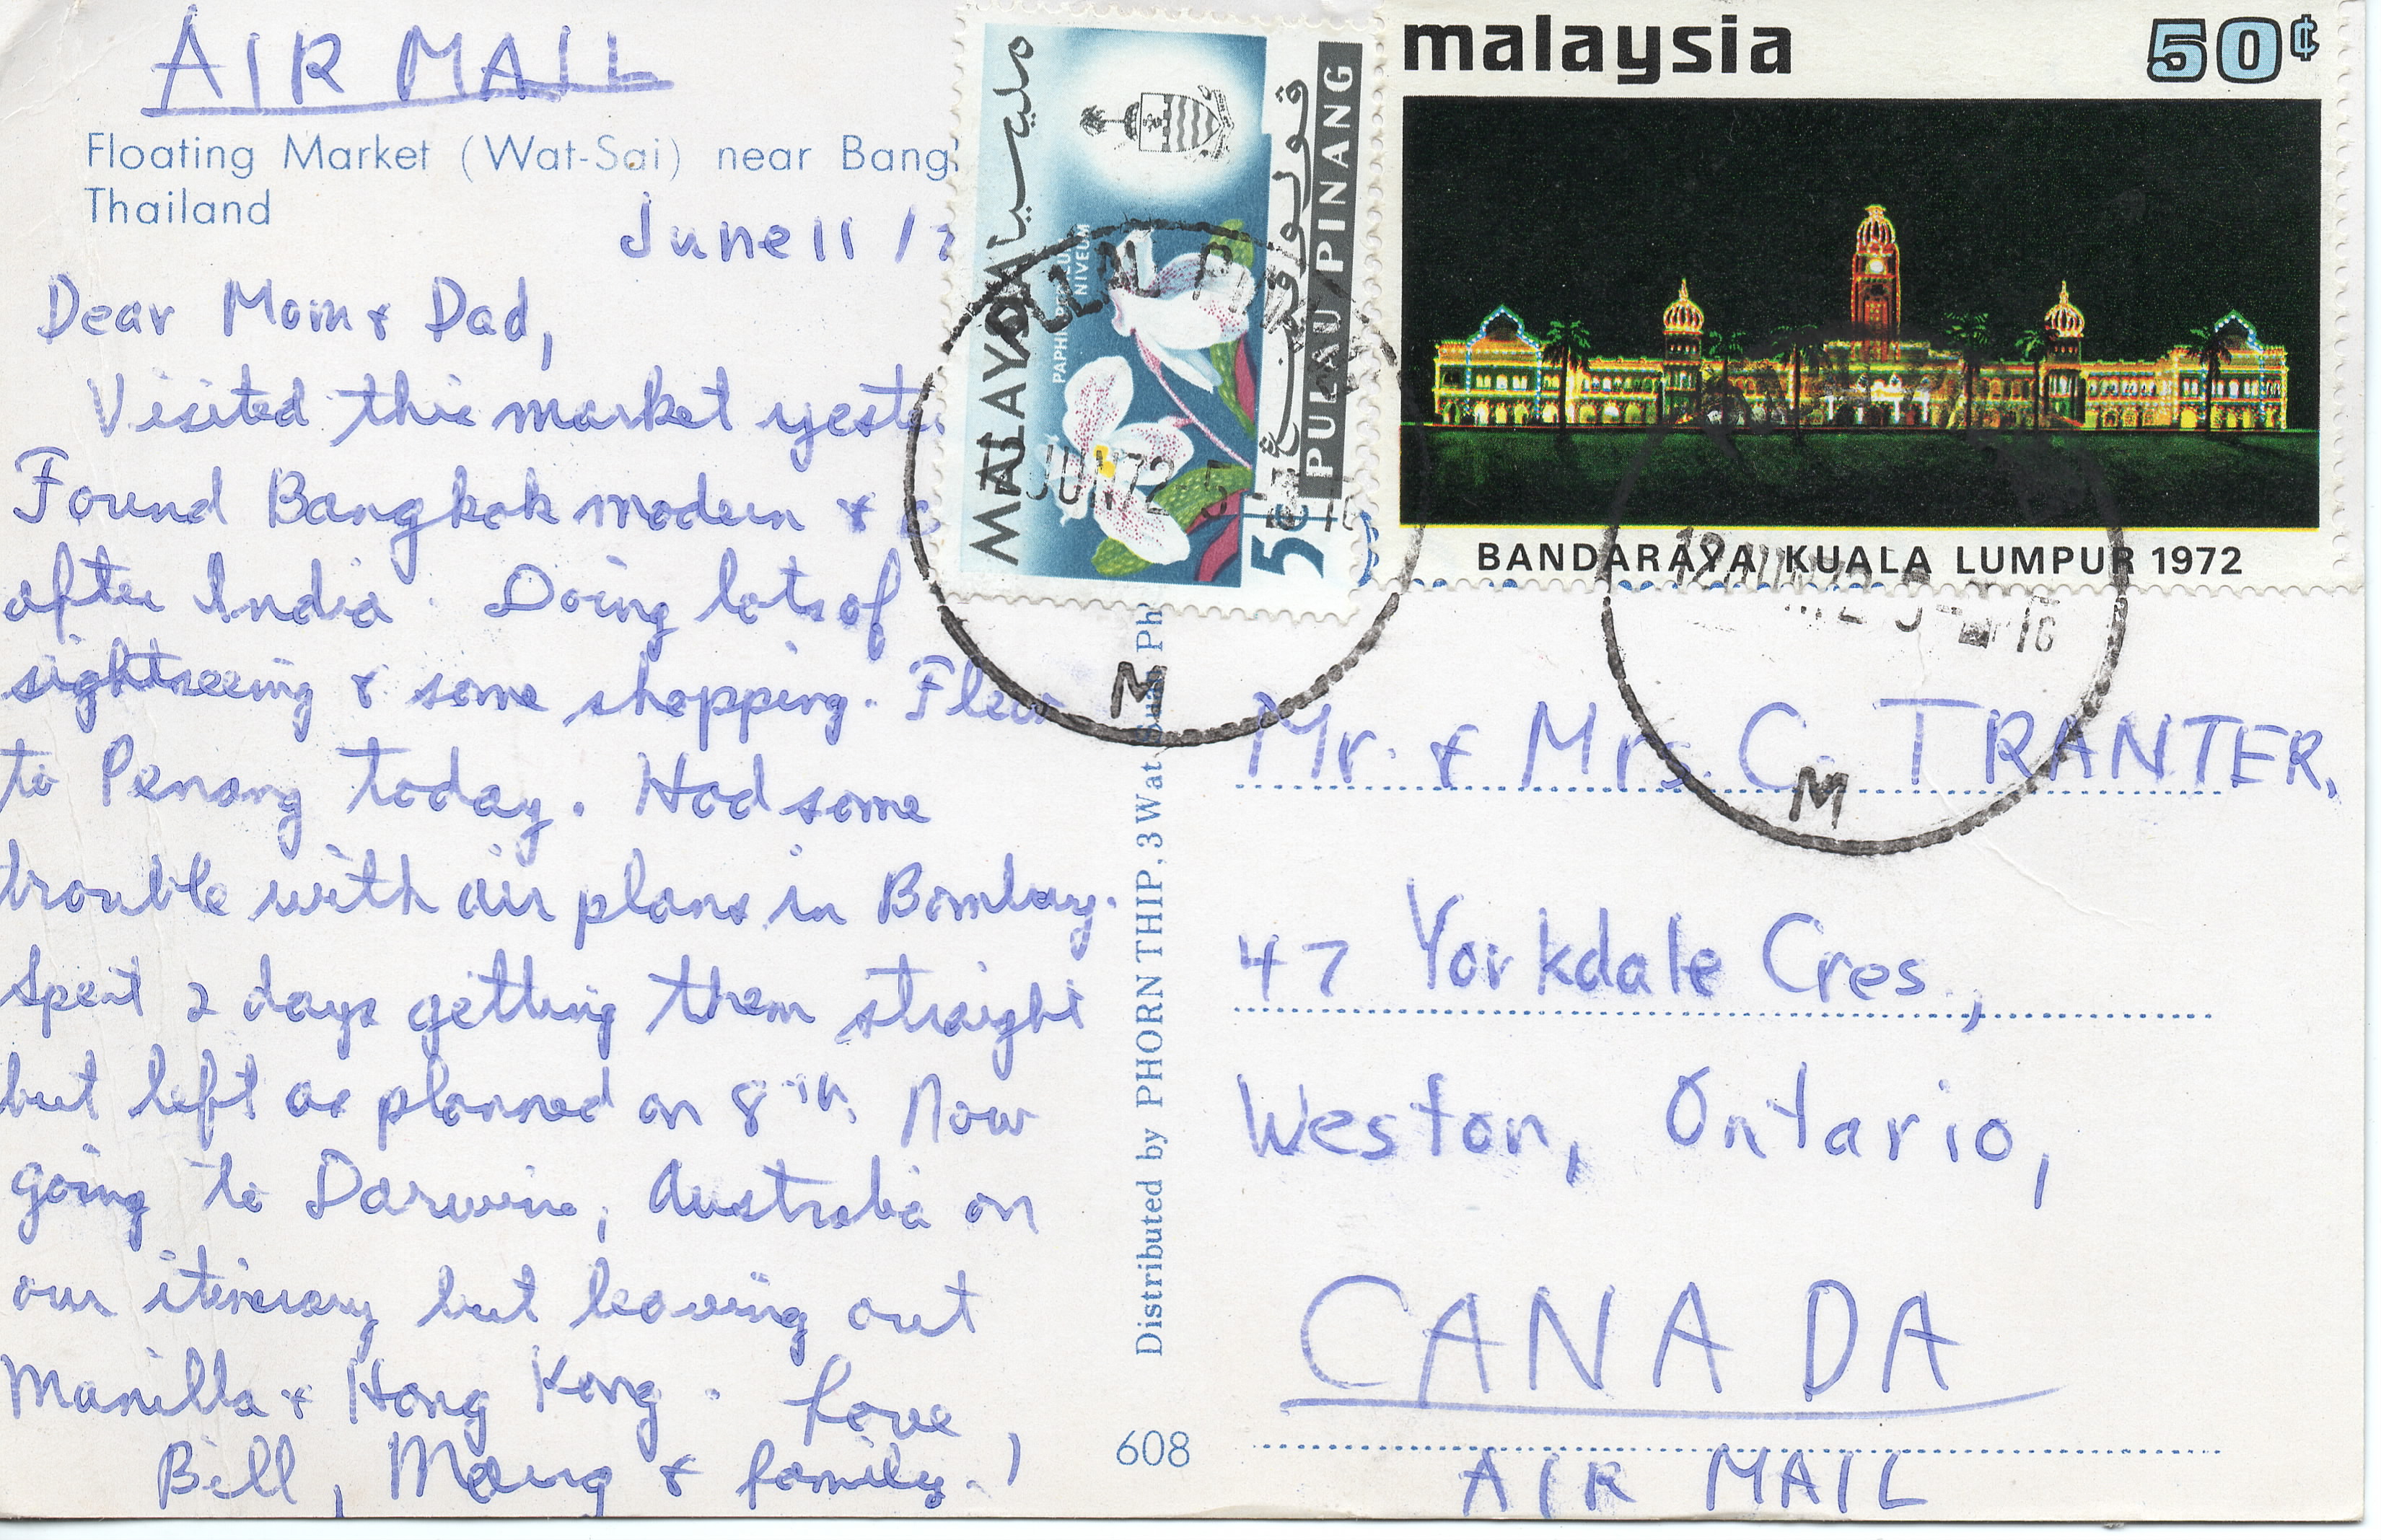 AIR MAIL
Floating Market (Wat-Sai) near Bang
Thailand
June 11 /7
Dear Mom & Dad,
Visited this market yeste
Found Bangkok modern &
after India. Doing lots of
sightseeing & some shopping. Flew
to Penang today. Had some
trouble with air plans in Bombay.
Spent 2 days getting them straight
but left as planned on 8th. Now
going to Darwin, Australia on
our itinerary but leaving out
Manilla & Hong Kong. Love,
Bill, Marg & family.
MALAYSIA
مليسيا
NIVEUM
PULAU PINANG
5c
JUN 72
M
malaysia
50¢
BANDARAYA KUALA LUMPUR 1972
M
Distributed by PHORN THIP, 3 Wat
608
Mr. & Mrs. C. TRANTER,
47 Yorkdale Cres.,
Weston, Ontario,
CANADA
AIR MAIL